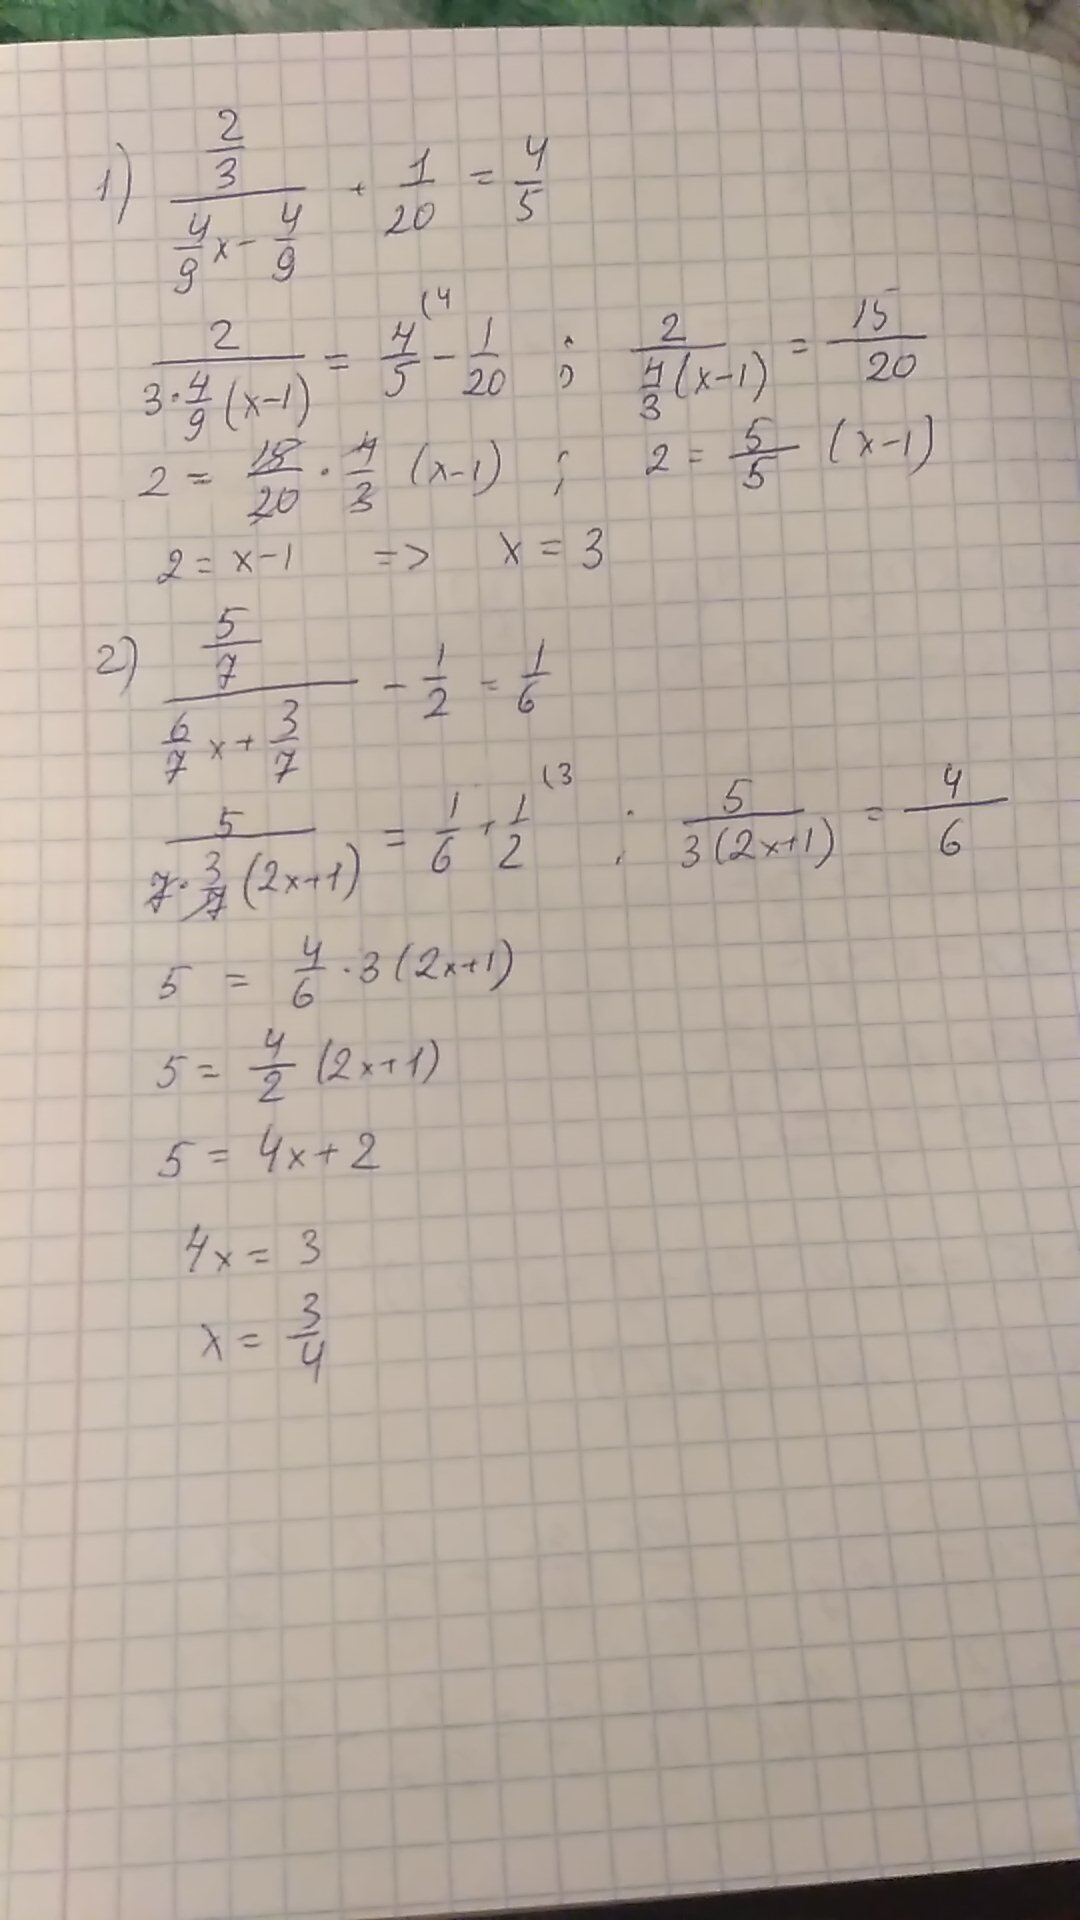 1) \frac{\frac{2}{3}}{\frac{4}{9}x - \frac{4}{9}} + \frac{1}{20} = \frac{4}{5}
\frac{2}{3 \cdot \frac{4}{9}(x-1)} = \frac{4}{5}^{(4} - \frac{1}{20} ; \frac{2}{\frac{4}{3}(x-1)} = \frac{15}{20}
2 = \frac{15}{20} \cdot \frac{4}{3} (x-1) ; 2 = \frac{5}{5} (x-1)
2 = x-1 => x = 3
2) \frac{\frac{5}{7}}{\frac{6}{7}x + \frac{3}{7}} - \frac{1}{2} = \frac{1}{6}
\frac{5}{7 \cdot \frac{3}{7}(2x+1)} = \frac{1}{6} + \frac{1}{2}^{(3} ; \frac{5}{3(2x+1)} = \frac{4}{6}
5 = \frac{4}{6} \cdot 3(2x+1)
5 = \frac{4}{2} (2x+1)
5 = 4x+2
4x = 3
x = \frac{3}{4}